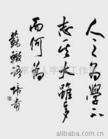 人之為學不
志其大雖多
而何為
蘇轍語